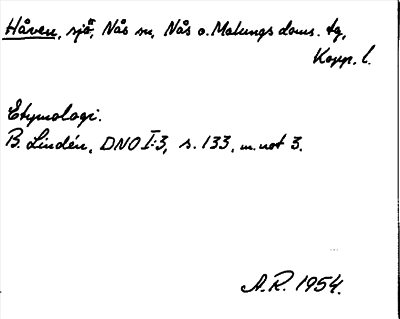 Håven, sjö, Nås sn, Nås o. Malungs doms. tg,
Kopp. l.
Etymologi.
B. Lindén, DNO I:3, s. 133, m. not 3.
A.R. 1954.